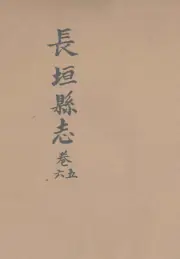 長垣縣志
卷五六